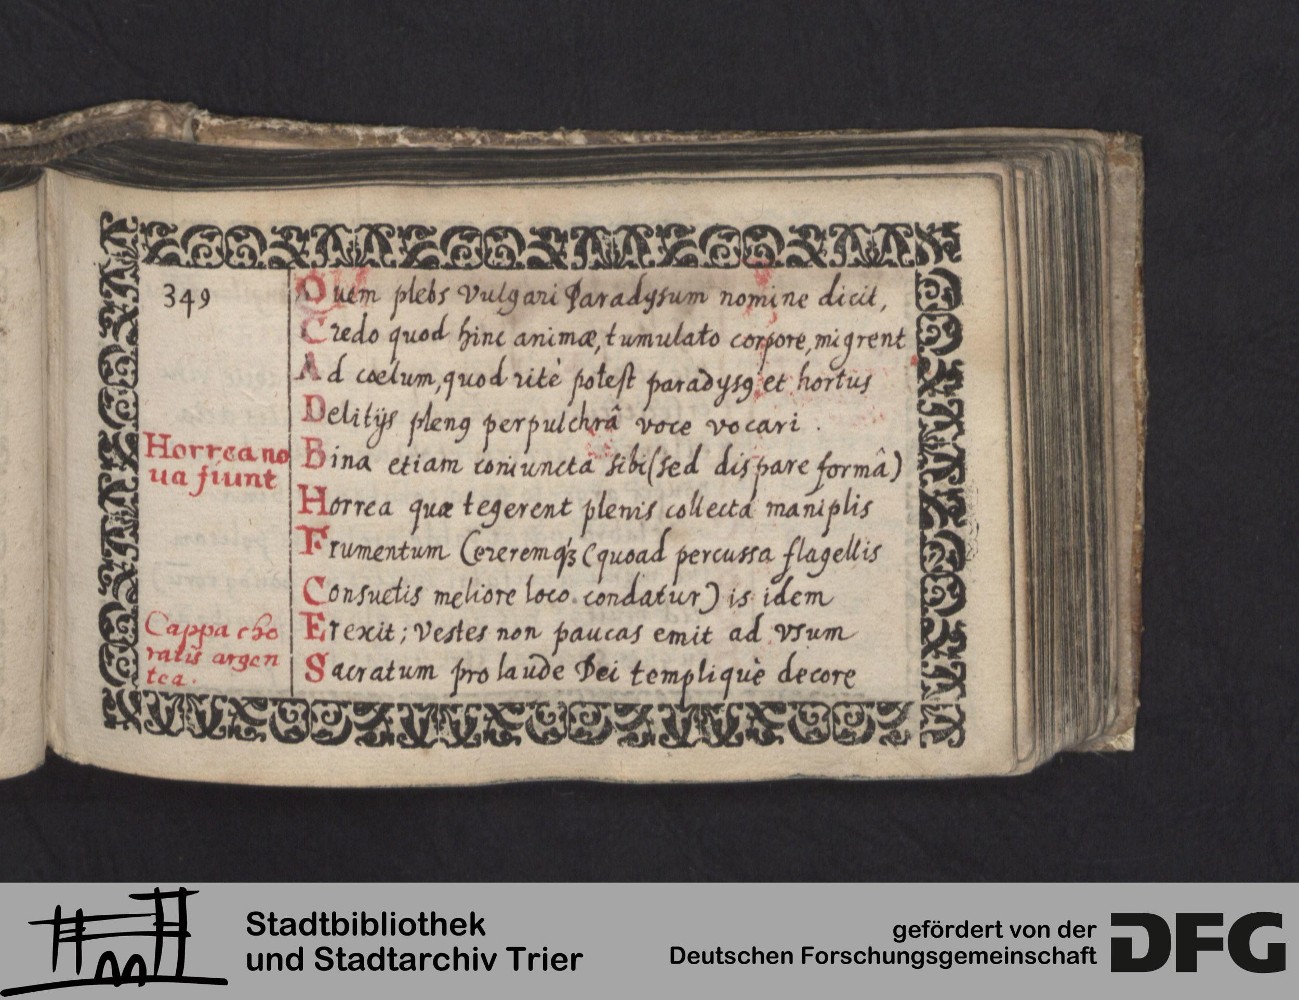 349
Quem plebs vulgari Paradysum nomine dicit,
Credo quod hinc animæ, tumulato corpore, migrent
Ad coelum, quod ritè potest paradysꝯ et hortus
Delitijs plenꝯ perpulchrâ voce vocari.
Horrea no
ua fiunt
Bina etiam coniuncta sibi (sed dispare formâ)
Horrea quæ tegerent plenis collecta maniplis
Frumentum Cereremqꝫ (quoad percussa flagellis
Consuetis meliore loco condatur) is idem
Cappa cho
ralis argen
tea.
Erexit; vestes non paucas emit ad vsum
Sacratum pro laude Dei templiquè decore
Stadtbibliothek
und Stadtarchiv Trier
gefördert von der
Deutschen Forschungsgemeinschaft
DFG